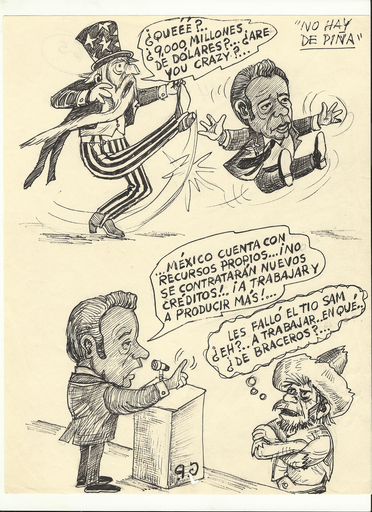 "NO HAY
DE PIÑA"
¿QUEÉÉ?..
¿9,000 MILLONES
DE DÓLARES?..¿ARE
YOU CRAZY?...
...MÉXICO CUENTA CON
RECURSOS PROPIOS...¡NO
SE CONTRATARÁN NUEVOS
CRÉDITOS!..¡A TRABAJAR Y
A PRODUCIR MÁS!...
LES FALLÓ EL TIO SAM
¿EH?..A TRABAJAR..EN QUÉ..
¿DE BRACEROS?...